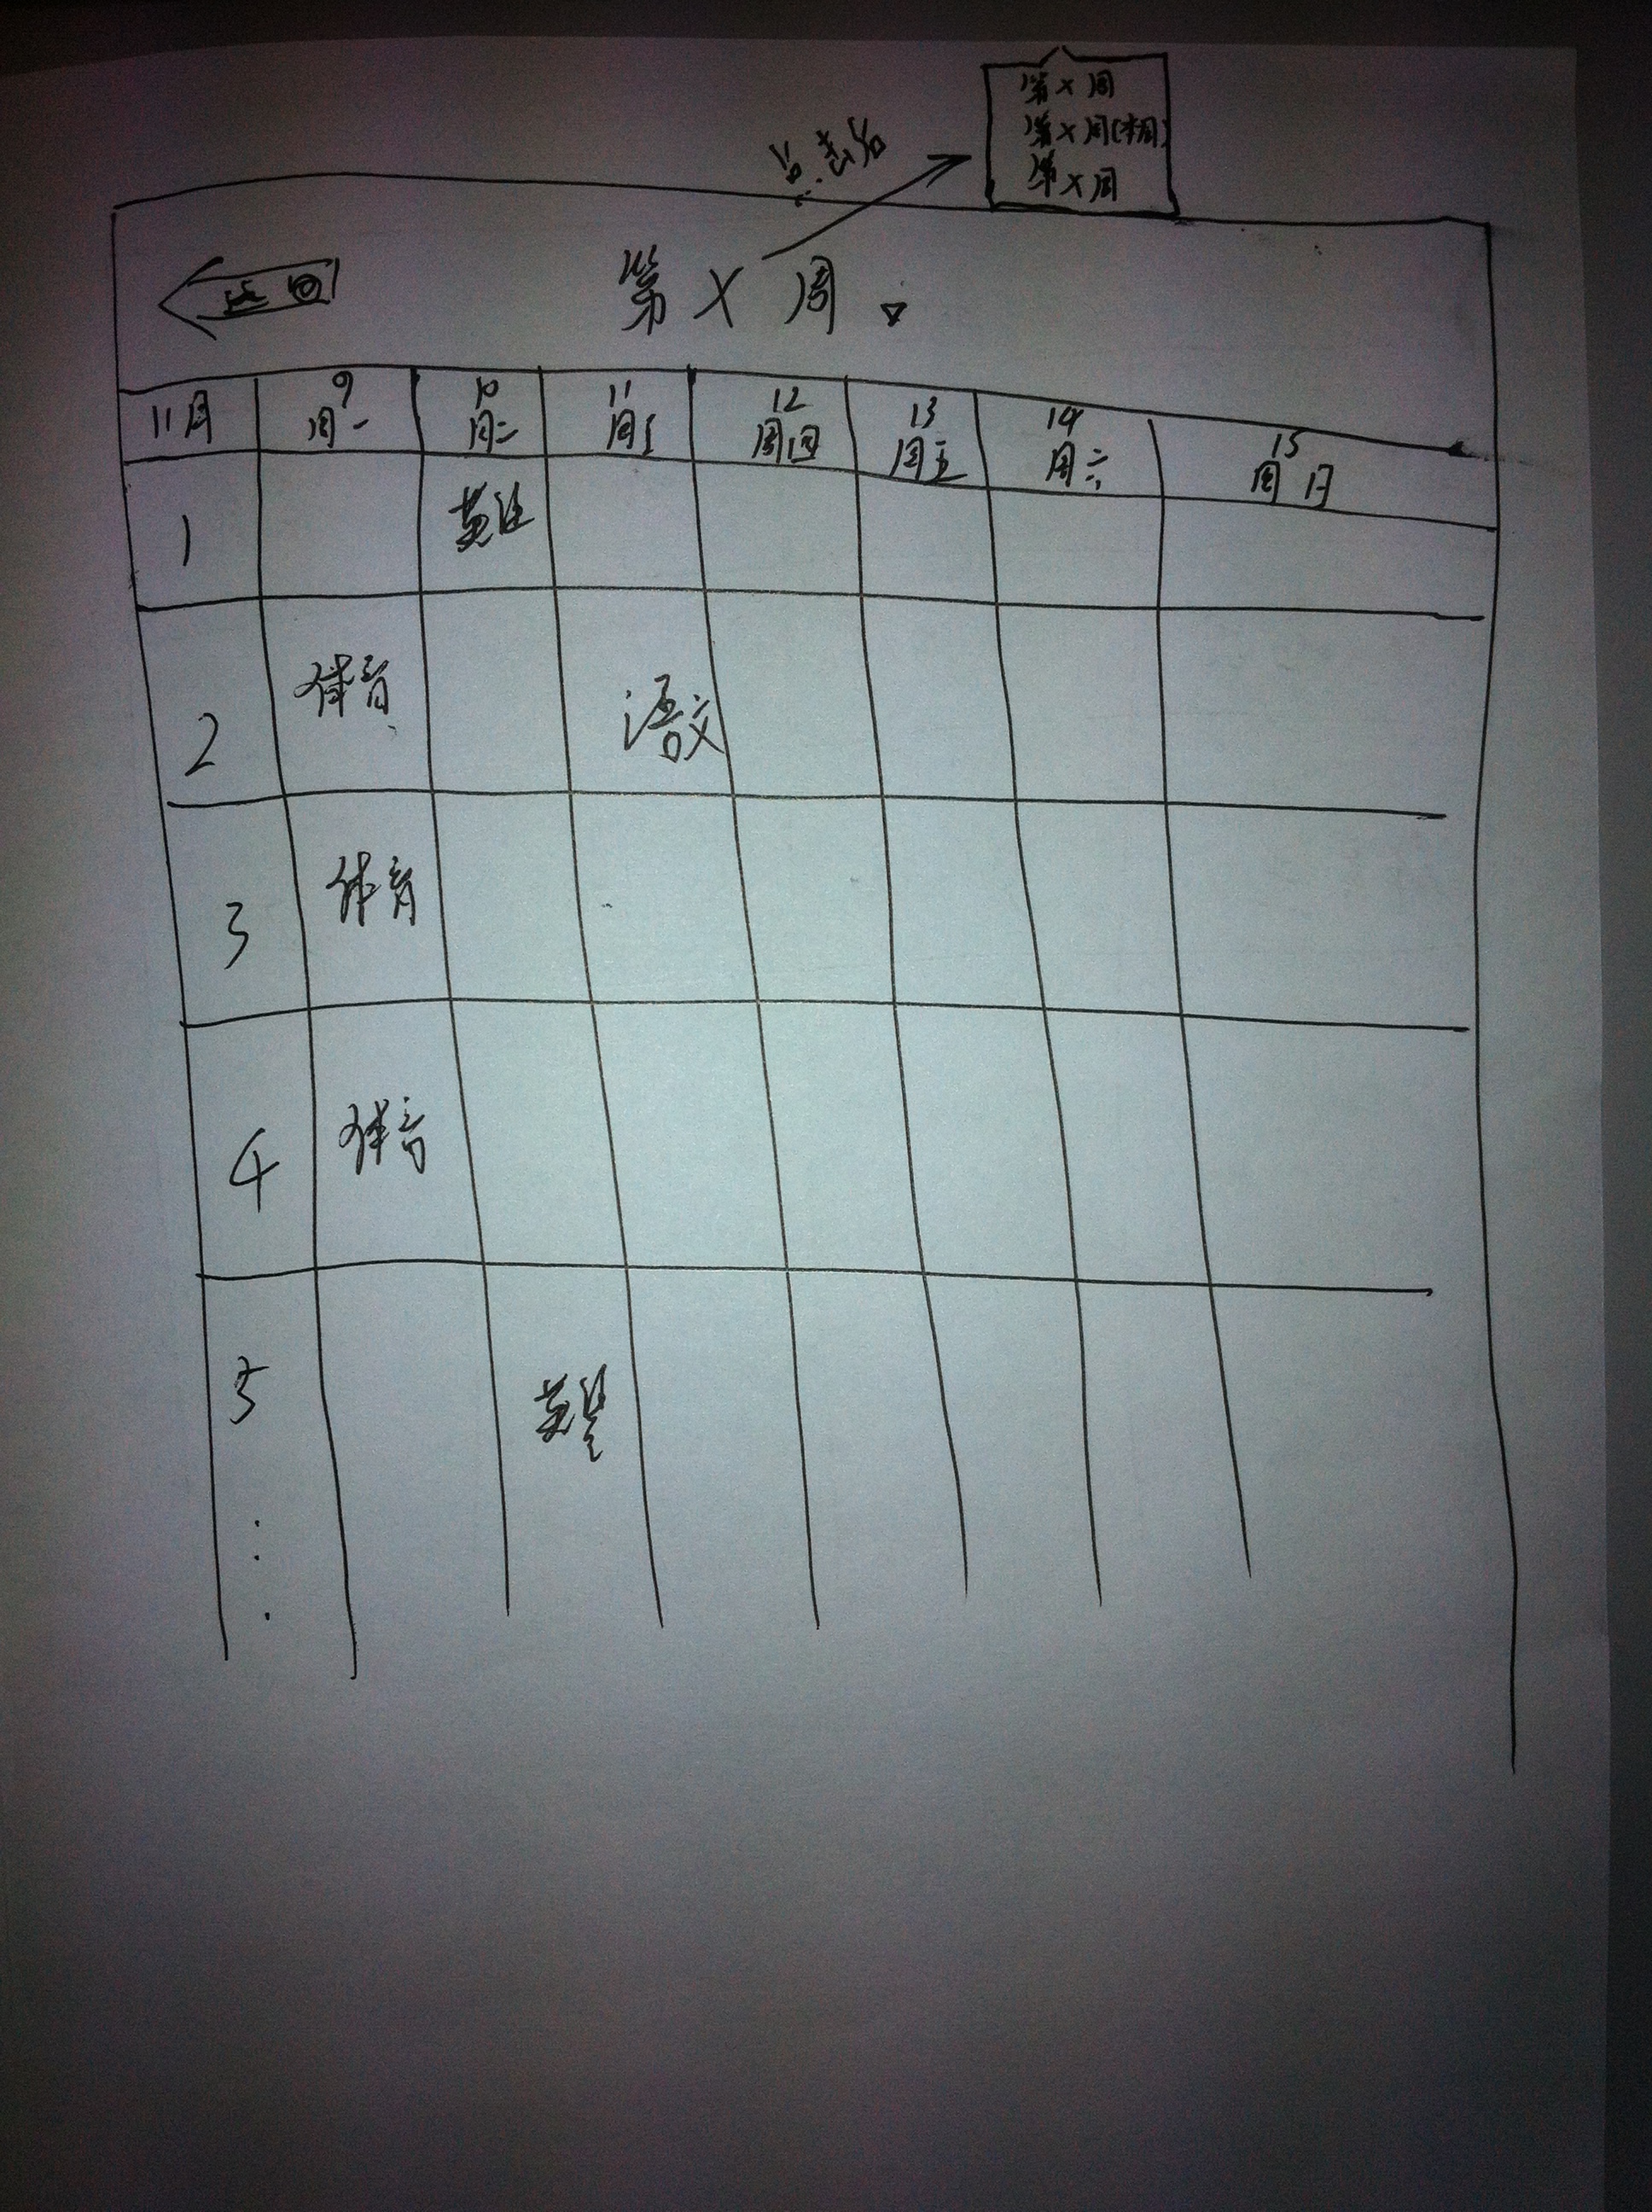 第X周
第X周(本周)
第X周
点击后
返回
第 X 周
11月 9 周一 10 周二 11 周三 12 周四 13 周五 14 周六 15 周日
1 英语
2 体育 语文
3 体育
4 体育
5 英语